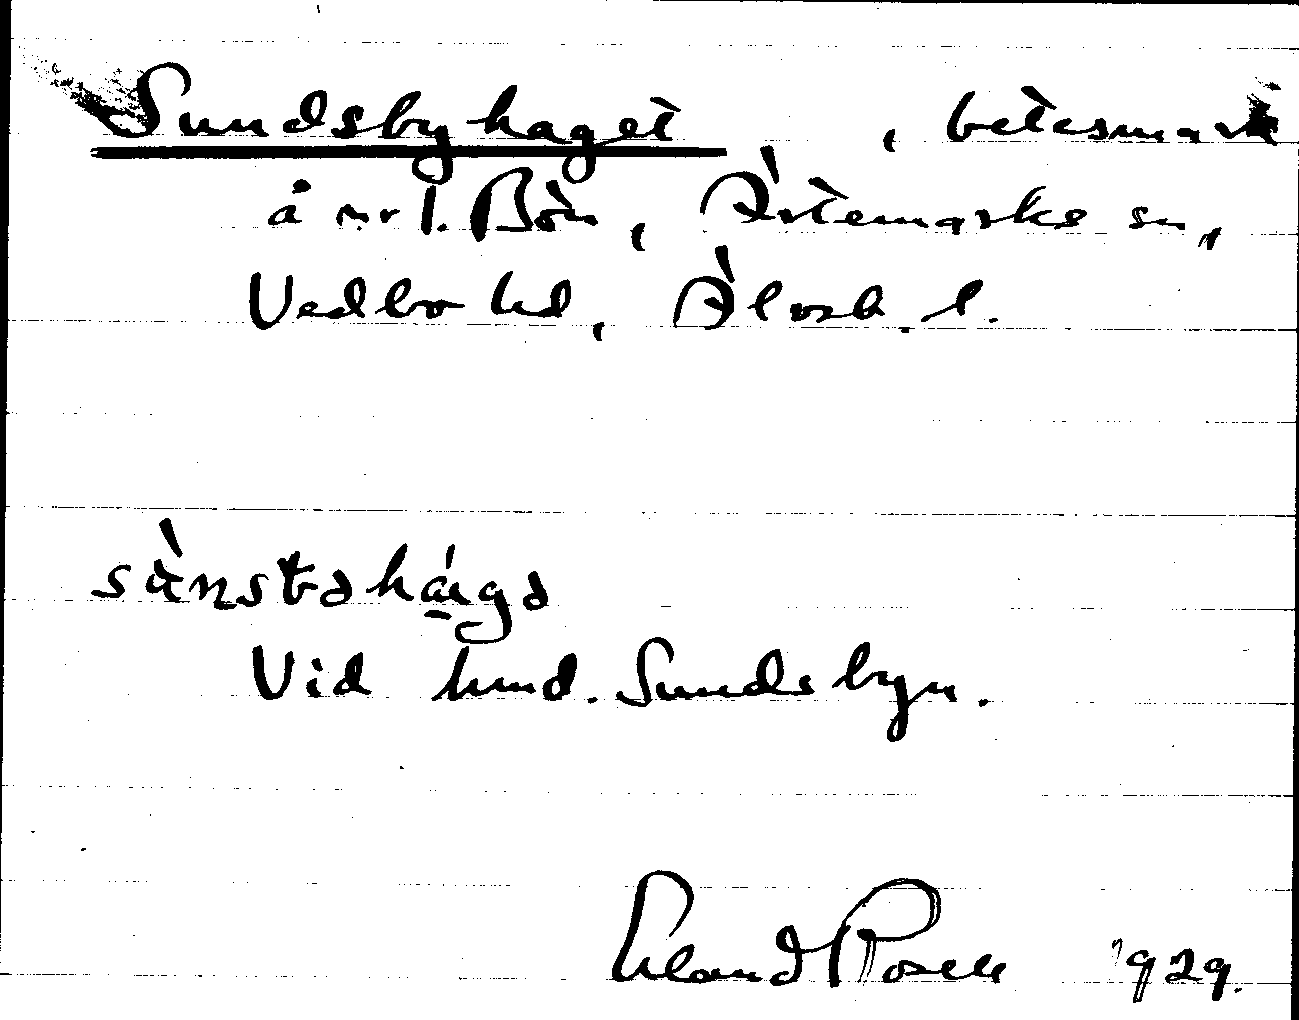 Sundsbyhaget, betesmark
å nr 1. Bön, Ärtemarks sn,
Vedbo hd, Älvsb. l.
sànstəhá̱gə
Vid hmd. Sundsbyn.
Erland Rosell 1929.